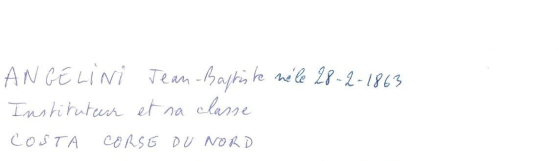 ANGELINI Jean-Baptiste né le 28-2-1863
Instituteur et sa classe
COSTA CORSE DU NORD